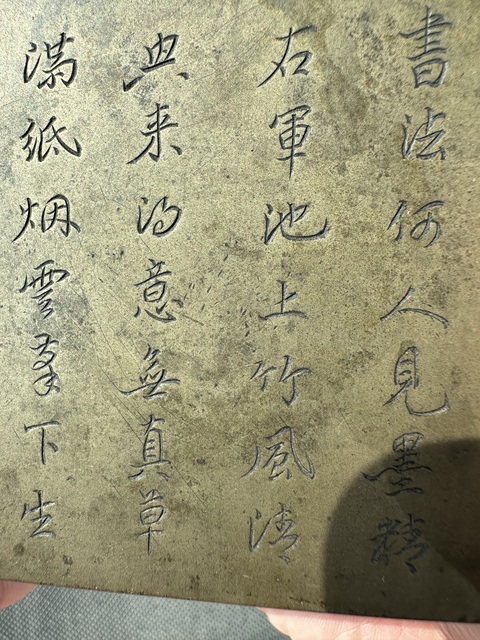 書法何人見墨精
右軍池上竹風清
興来得意無真草
滿紙烟雲筆下生